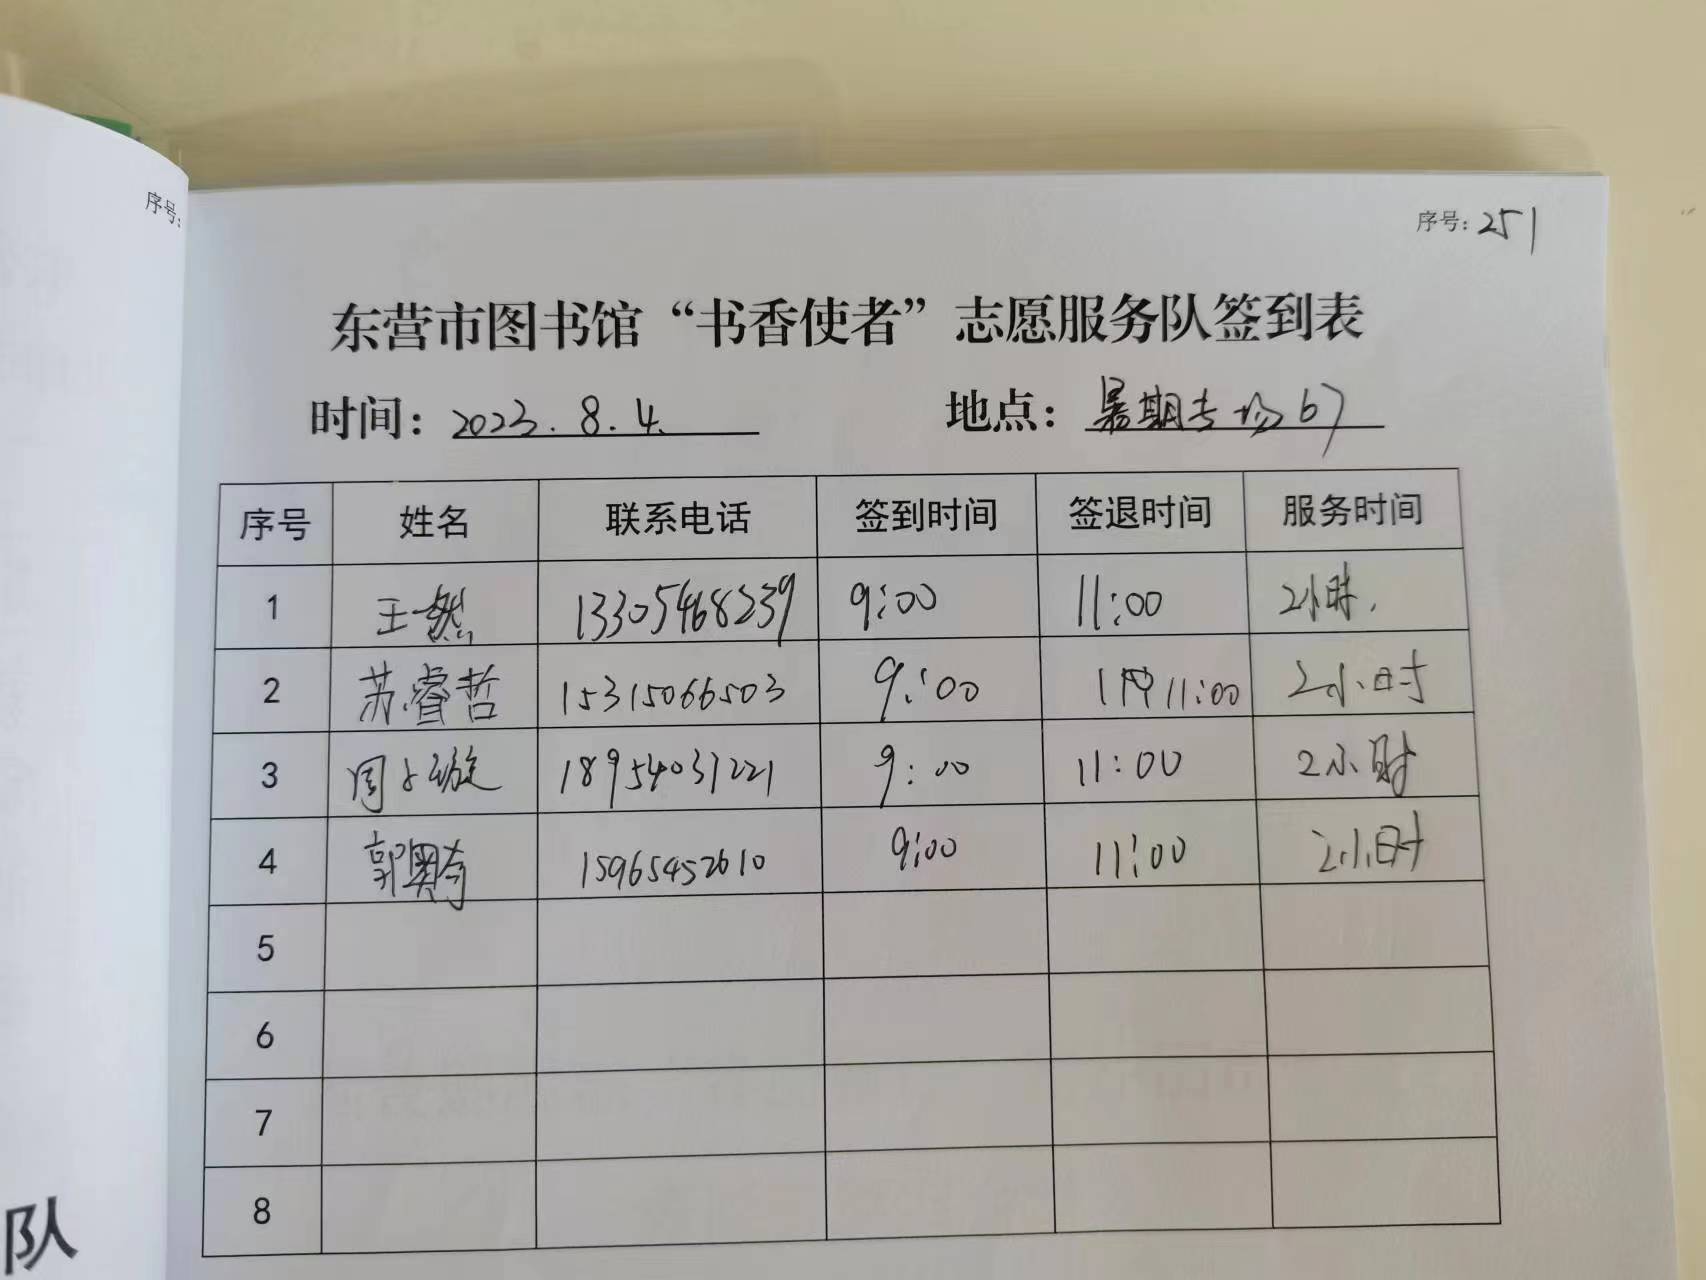 序号:
序号: 251
东营市图书馆“书香使者”志愿服务队签到表
时间: 2023.8.4. 地点: 暑期专场67
序号 姓名 联系电话 签到时间 签退时间 服务时间
1 王一然 13305468239 9:00 11:00 2小时.
2 苏睿哲 15315066503 9:00 11:00 2小时
3 周子璇 18954037221 9:00 11:00 2小时
4 郭奥奇 15965452610 9:00 11:00 2小时
5
6
7
8
队